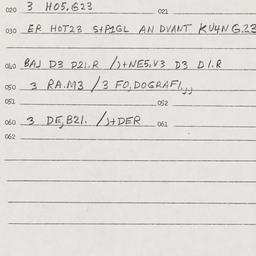 020 3 HO5,G23 021
030 ER HOT23 S+P1GL AN DVANT KU4NG.23
040 BAJ D3 P21.R /)+NE5,V3 D3 D1.R
050 3 RA.M3 /3 FO,DOGRAFI,,
051 052
060 3 DE,B21. /)+DER 061
062